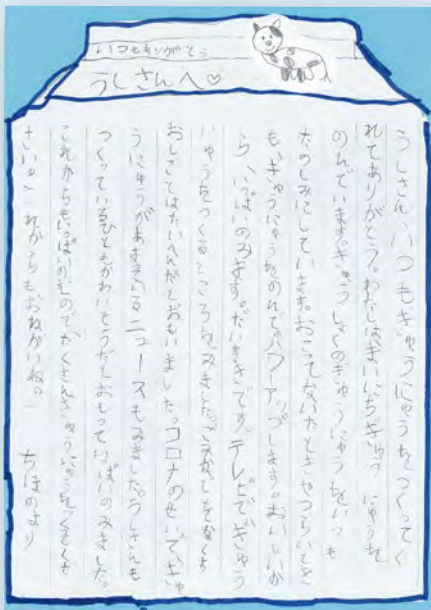 いつもありがとう
うしさんへ♡
うしさん、いつもぎゅうにゅうをつくってく
れてありがとう。わたしはまいにちぎゅうにゅうを
のんでいます。きゅうしょくのぎゅうにゅうをいつも
たのしみにしています。おこってないたときやつらいとき
も、ぎゅうにゅうをのんでパワーアップします。おいしいか
ら、いっぱいのみます。だいすきです。テレビでぎゅう
にゅうをつくるところをみました。
おしごとはたいへんだとおもいました。コロナのせいで、ぎゅ
うにゅうがあまっているニュースもみました。うしさんも
つくっているひともかわいそうだとおもっていっぱいのみました。
これからもいっぱいのむのでたくさんぎゅうにゅうをつくってくだ
さいね。これからもおねがいね。 ちほのより